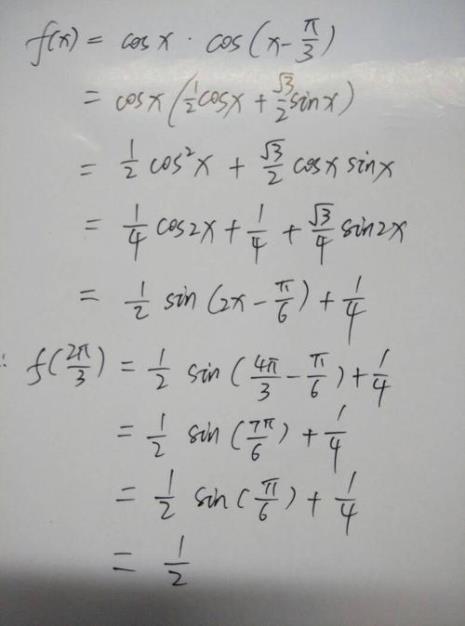 f(x) = cos x · cos (x - π/3)
= cos x (1/2 cos x + √3/2 sin x)
= 1/2 cos²x + √3/2 cos x sin x
= 1/4 cos 2x + 1/4 + √3/4 sin 2x
= 1/2 sin (2x - π/6) + 1/4
∴ f(2π/3) = 1/2 sin (4π/3 - π/6) + 1/4
= 1/2 sin (7π/6) + 1/4
= 1/2 sin (π/6) + 1/4
= 1/2